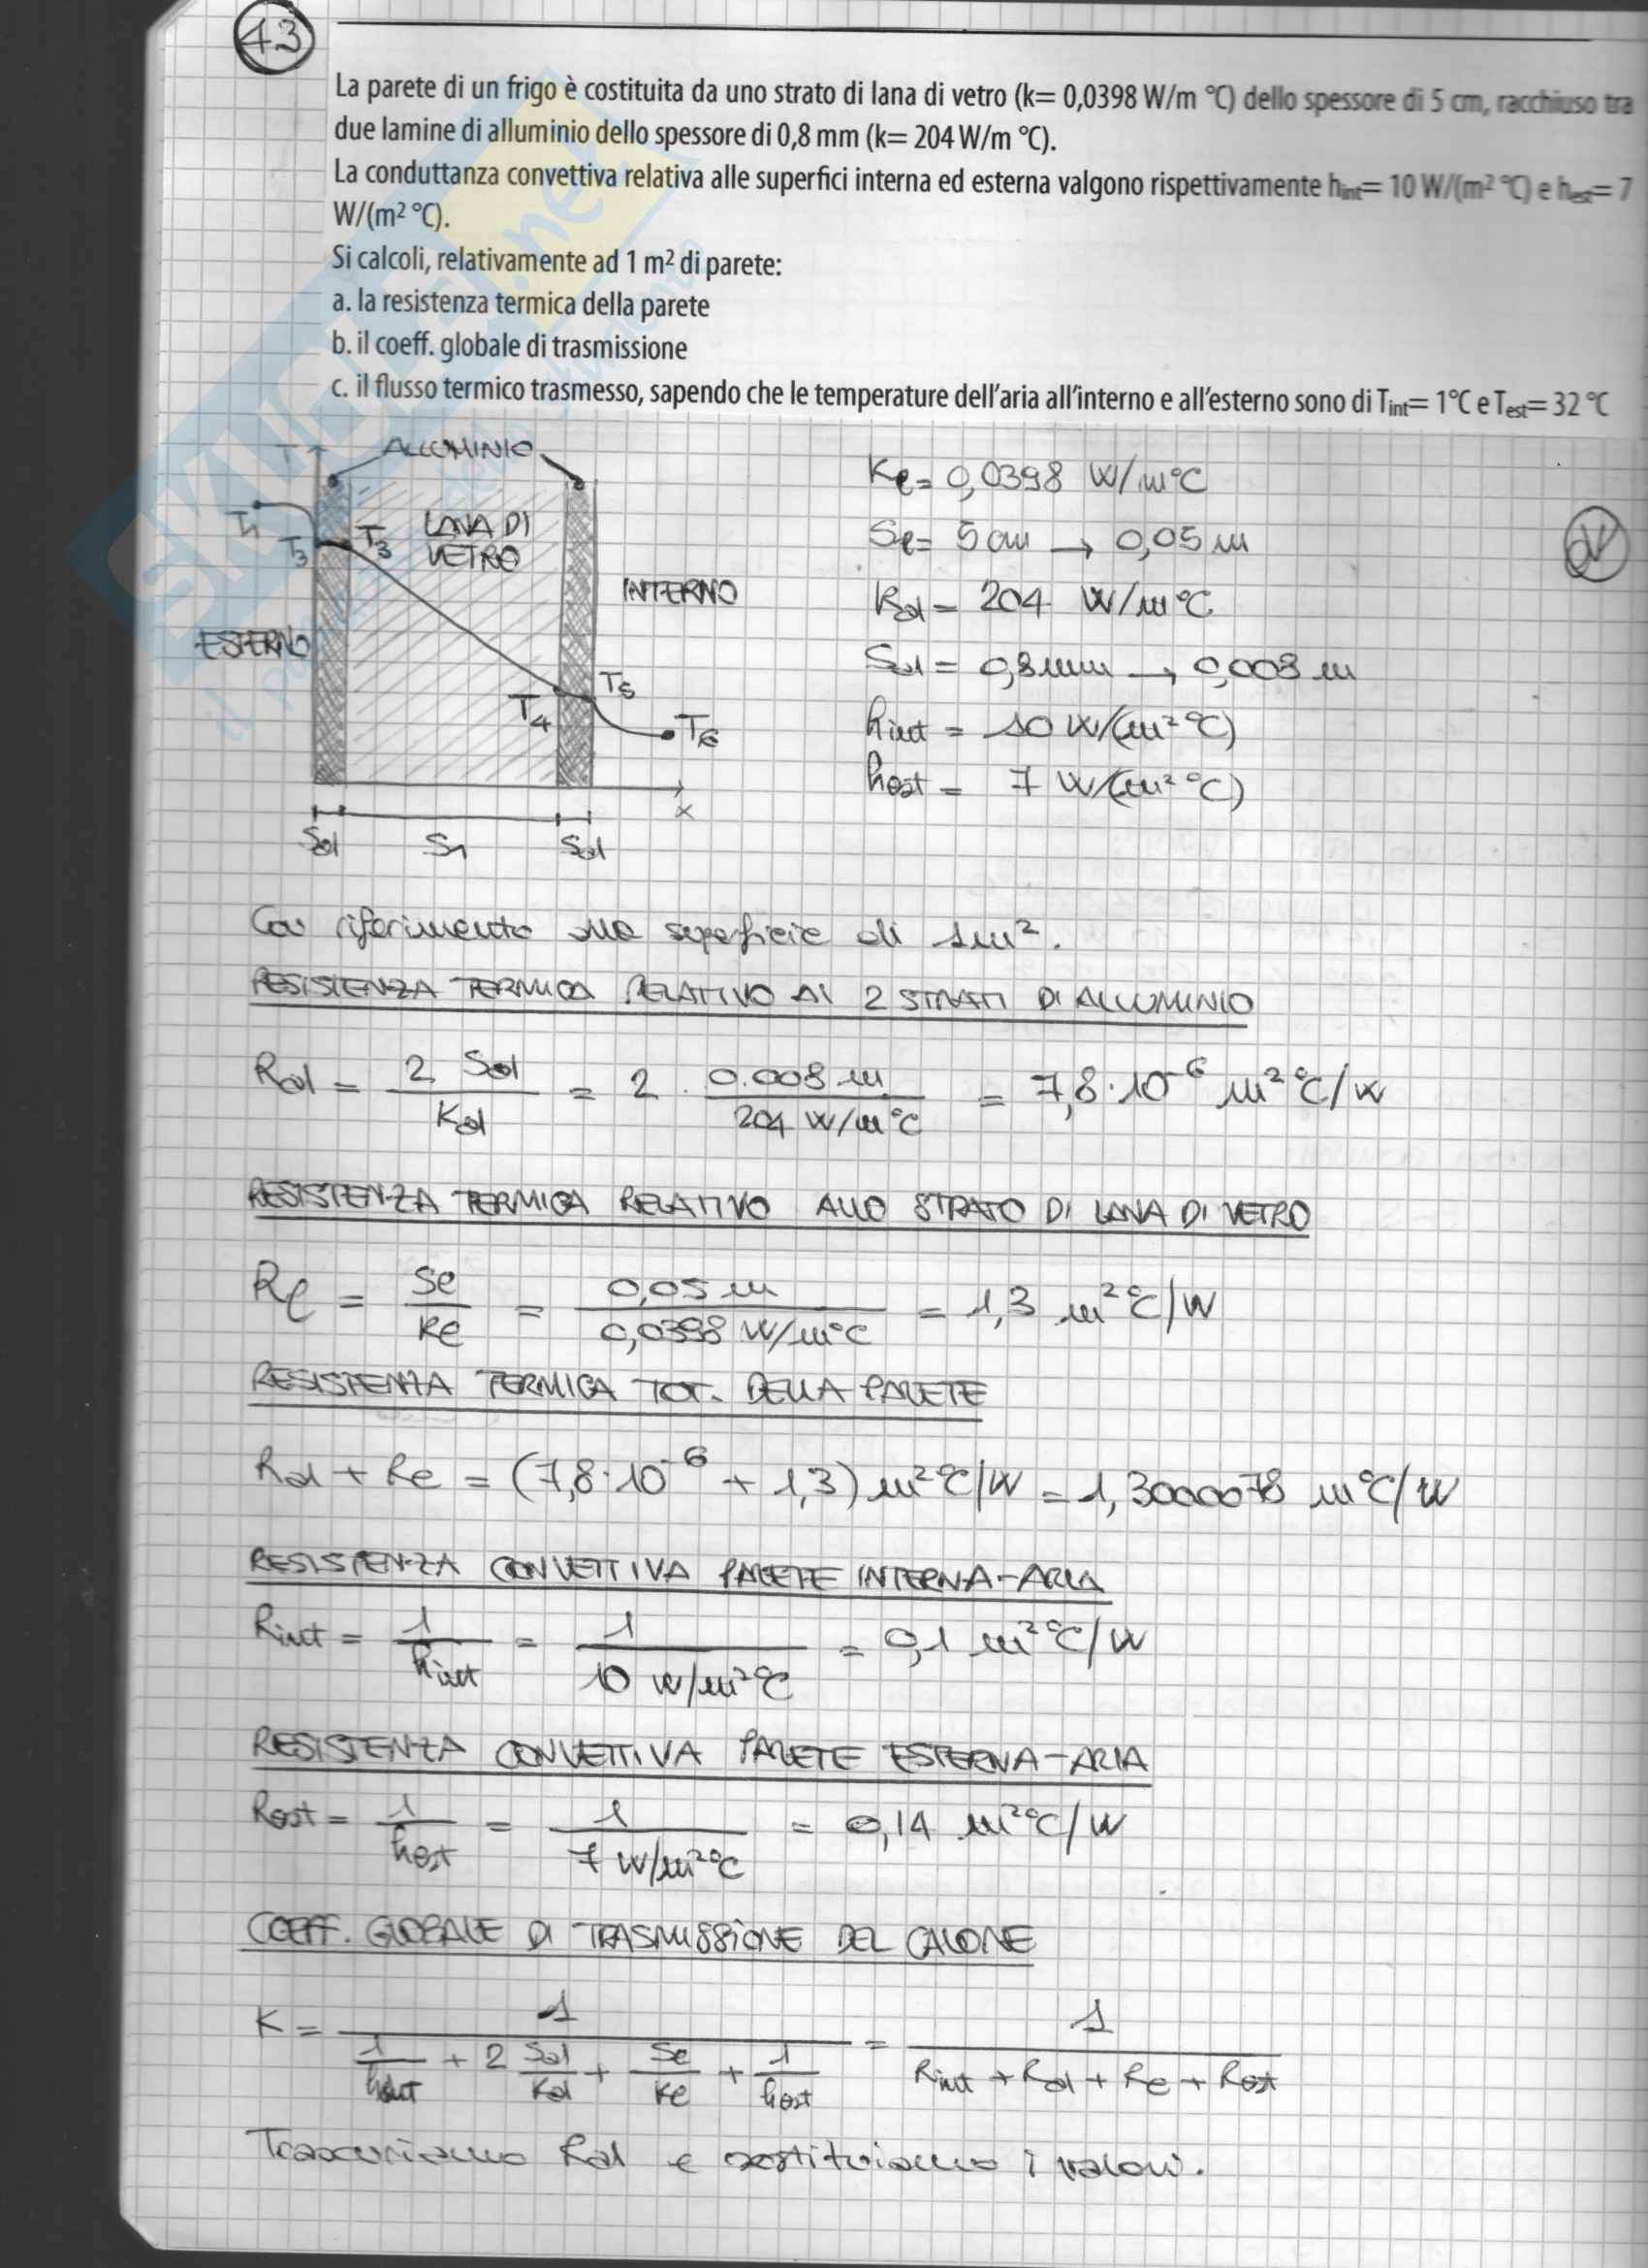 43
La parete di un frigo è costituita da uno strato di lana di vetro (k= 0,0398 W/m °C) dello spessore di 5 cm, racchiuso tra
due lamine di alluminio dello spessore di 0,8 mm (k= 204 W/m °C).
La conduttanza convettiva relativa alle superfici interna ed esterna valgono rispettivamente hint= 10 W/(m² °C) e hest= 7
W/(m² °C).
Si calcoli, relativamente ad 1 m² di parete:
a. la resistenza termica della parete
b. il coeff. globale di trasmissione
c. il flusso termico trasmesso, sapendo che le temperature dell'aria all'interno e all'esterno sono di Tint= 1°C e Test= 32 °C
T ALLUMINIO
T1
T3 T3 LANA DI
VETRO
INTERNO
ESTERNO
T4 T5
T6
x
Sal S1 Sal
Kl= 0,0398 W/m°C
Sl= 5 cm → 0,05 m
Kal= 204 W/m°C
Sal= 0,8 mm → 0,008 m
hint = 10 W/(m² °C)
hest = 7 W/(m² °C)
OK
Con riferimento alla superficie di 1m².
RESISTENZA TERMICA RELATIVO AI 2 STRATI DI ALLUMINIO
Ral = 2 Sal / Kal = 2 · 0.008 m / 204 W/m°C = 7,8·10⁻⁶ m²°C/W
RESISTENZA TERMICA RELATIVO ALLO STRATO DI LANA DI VETRO
Rl = Sl / Kl = 0,05 m / 0,0398 W/m°C = 1,3 m²°C/W
RESISTENZA TERMICA TOT. DELLA PARETE
Ral + Rl = (7,8·10⁻⁶ + 1,3) m²°C/W = 1,3000078 m°C/W
RESISTENZA CONVETTIVA PARETE INTERNA-ARIA
Rint = 1 / hint = 1 / 10 W/m²°C = 0,1 m²°C/W
RESISTENZA CONVETTIVA PARETE ESTERNA-ARIA
Rest = 1 / hest = 1 / 7 W/m²°C = 0,14 m²°C/W
COEFF. GLOBALE DI TRASMISSIONE DEL CALORE
K = 1 / (1/hint + 2 Sal/Kal + Sl/Kl + 1/hest) = 1 / (Rint + Ral + Rl + Rest)
Trascuriamo Ral e sostituiamo i valori.